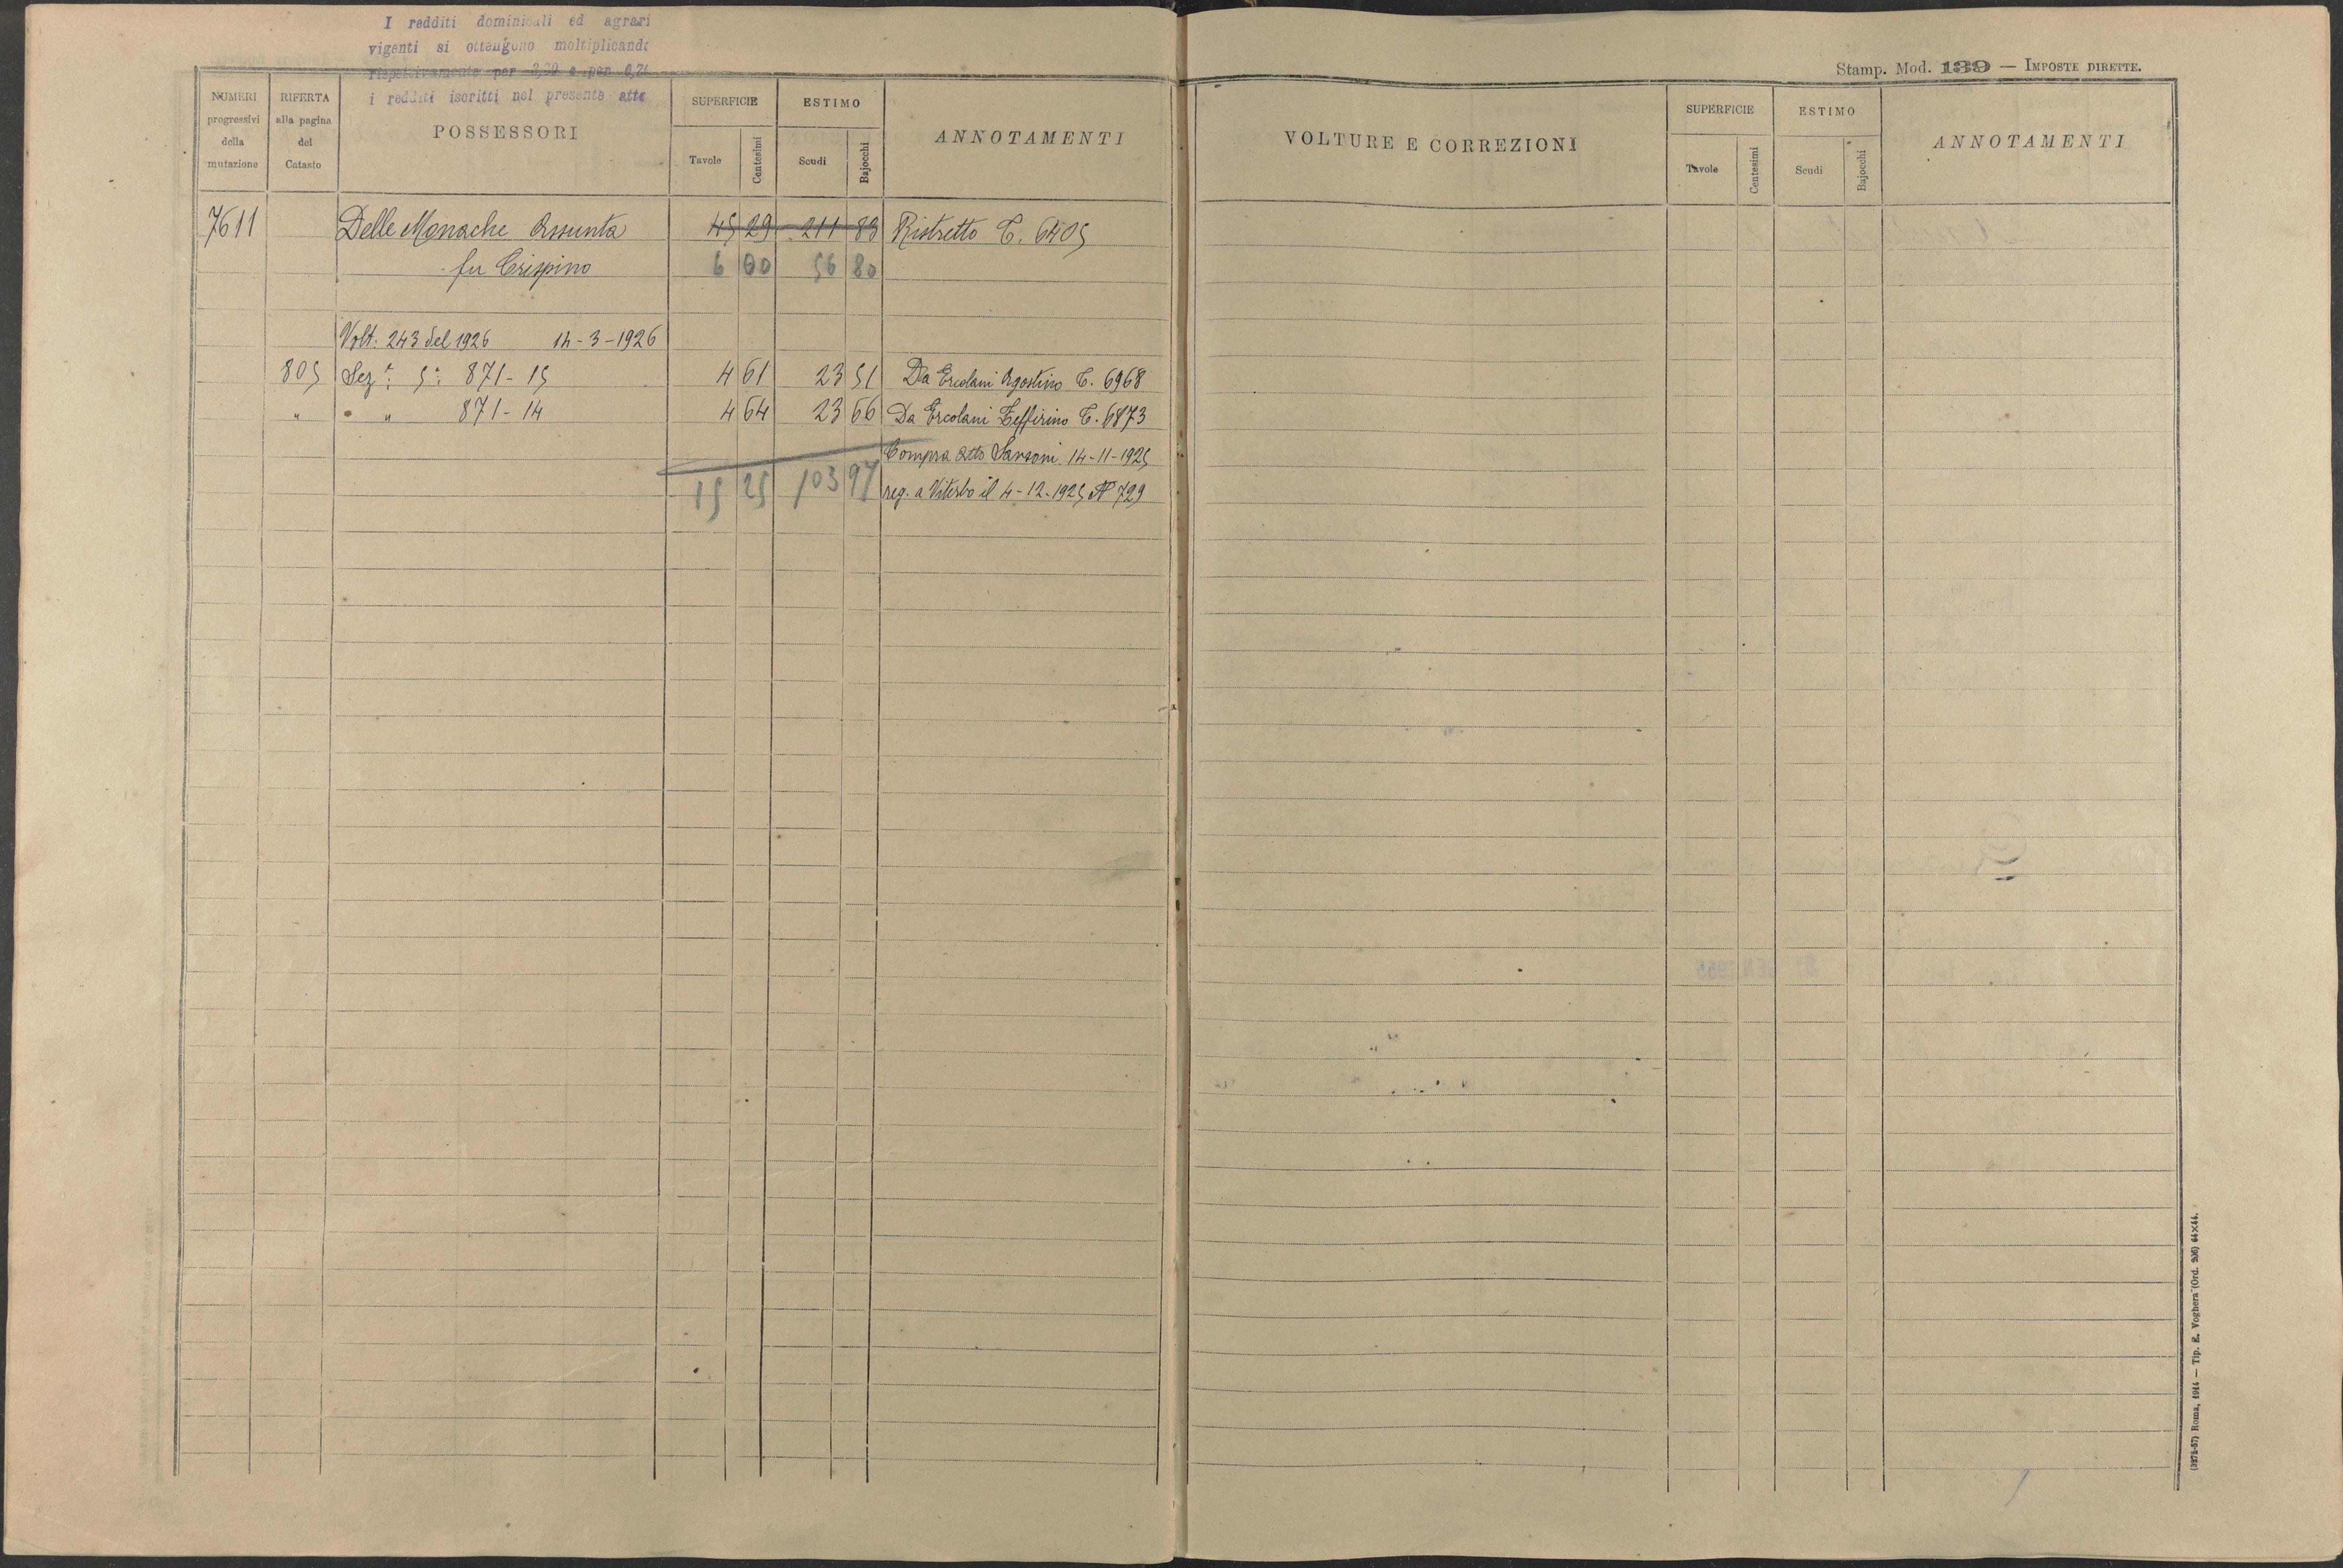 I redditi dominicali ed agrari
vigenti si ottengono moltiplicando
rispettivamente per 3,20 e per 0,70
i redditi iscritti nel presente atto
NUMERI progressivi della mutazione
RIFERTA alla pagina del Catasto
POSSESSORI
SUPERFICIE
Tavole
Centesimi
ESTIMO
Scudi
Bajocchi
ANNOTAMENTI
7611 Delle Monache Assunta 45 29 211 83 Ristretto C. 6405
fu Crispino 6 00 56 80
Volt: 243 del 1926 14-3-1926
805 Sez: 5: 871-15 4 61 23 51 Da Ercolani Agostino C. 6968
" " " 871-14 4 64 23 66 Da Ercolani Zeffirino C. 6873
Compra atto Sansoni 14-11-1925
15 25 103 97 reg. a Viterbo il 4-12-1925 N° 729
Stamp. Mod. 139 — IMPOSTE DIRETTE.
VOLTURE E CORREZIONI
SUPERFICIE
Tavole
Centesimi
ESTIMO
Scudi
Bajocchi
ANNOTAMENTI
Roma, 1914 — Tip. E. Voghera (Ord. 306) 64×44.